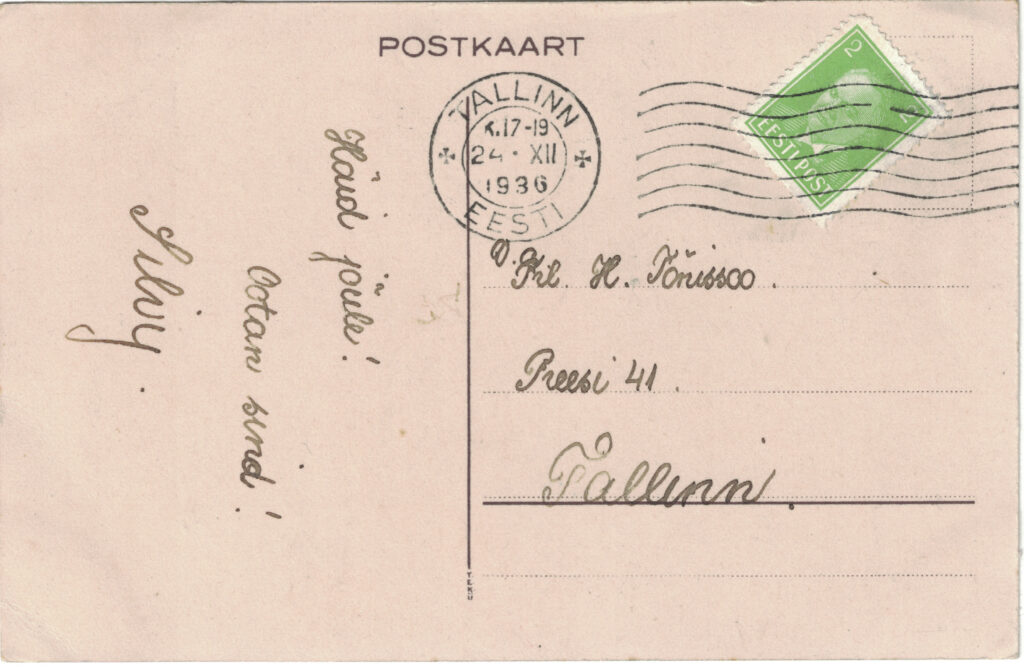 POSTKAART
TALLINN
K.17-19
24 · XII
1936
EESTI
2
2
EESTI POST
Häid jõule!
Ootan sind!
Silvy.
Prl. H. Tõnissoo.
Preesi 41.
Tallinn.
TEKÜ